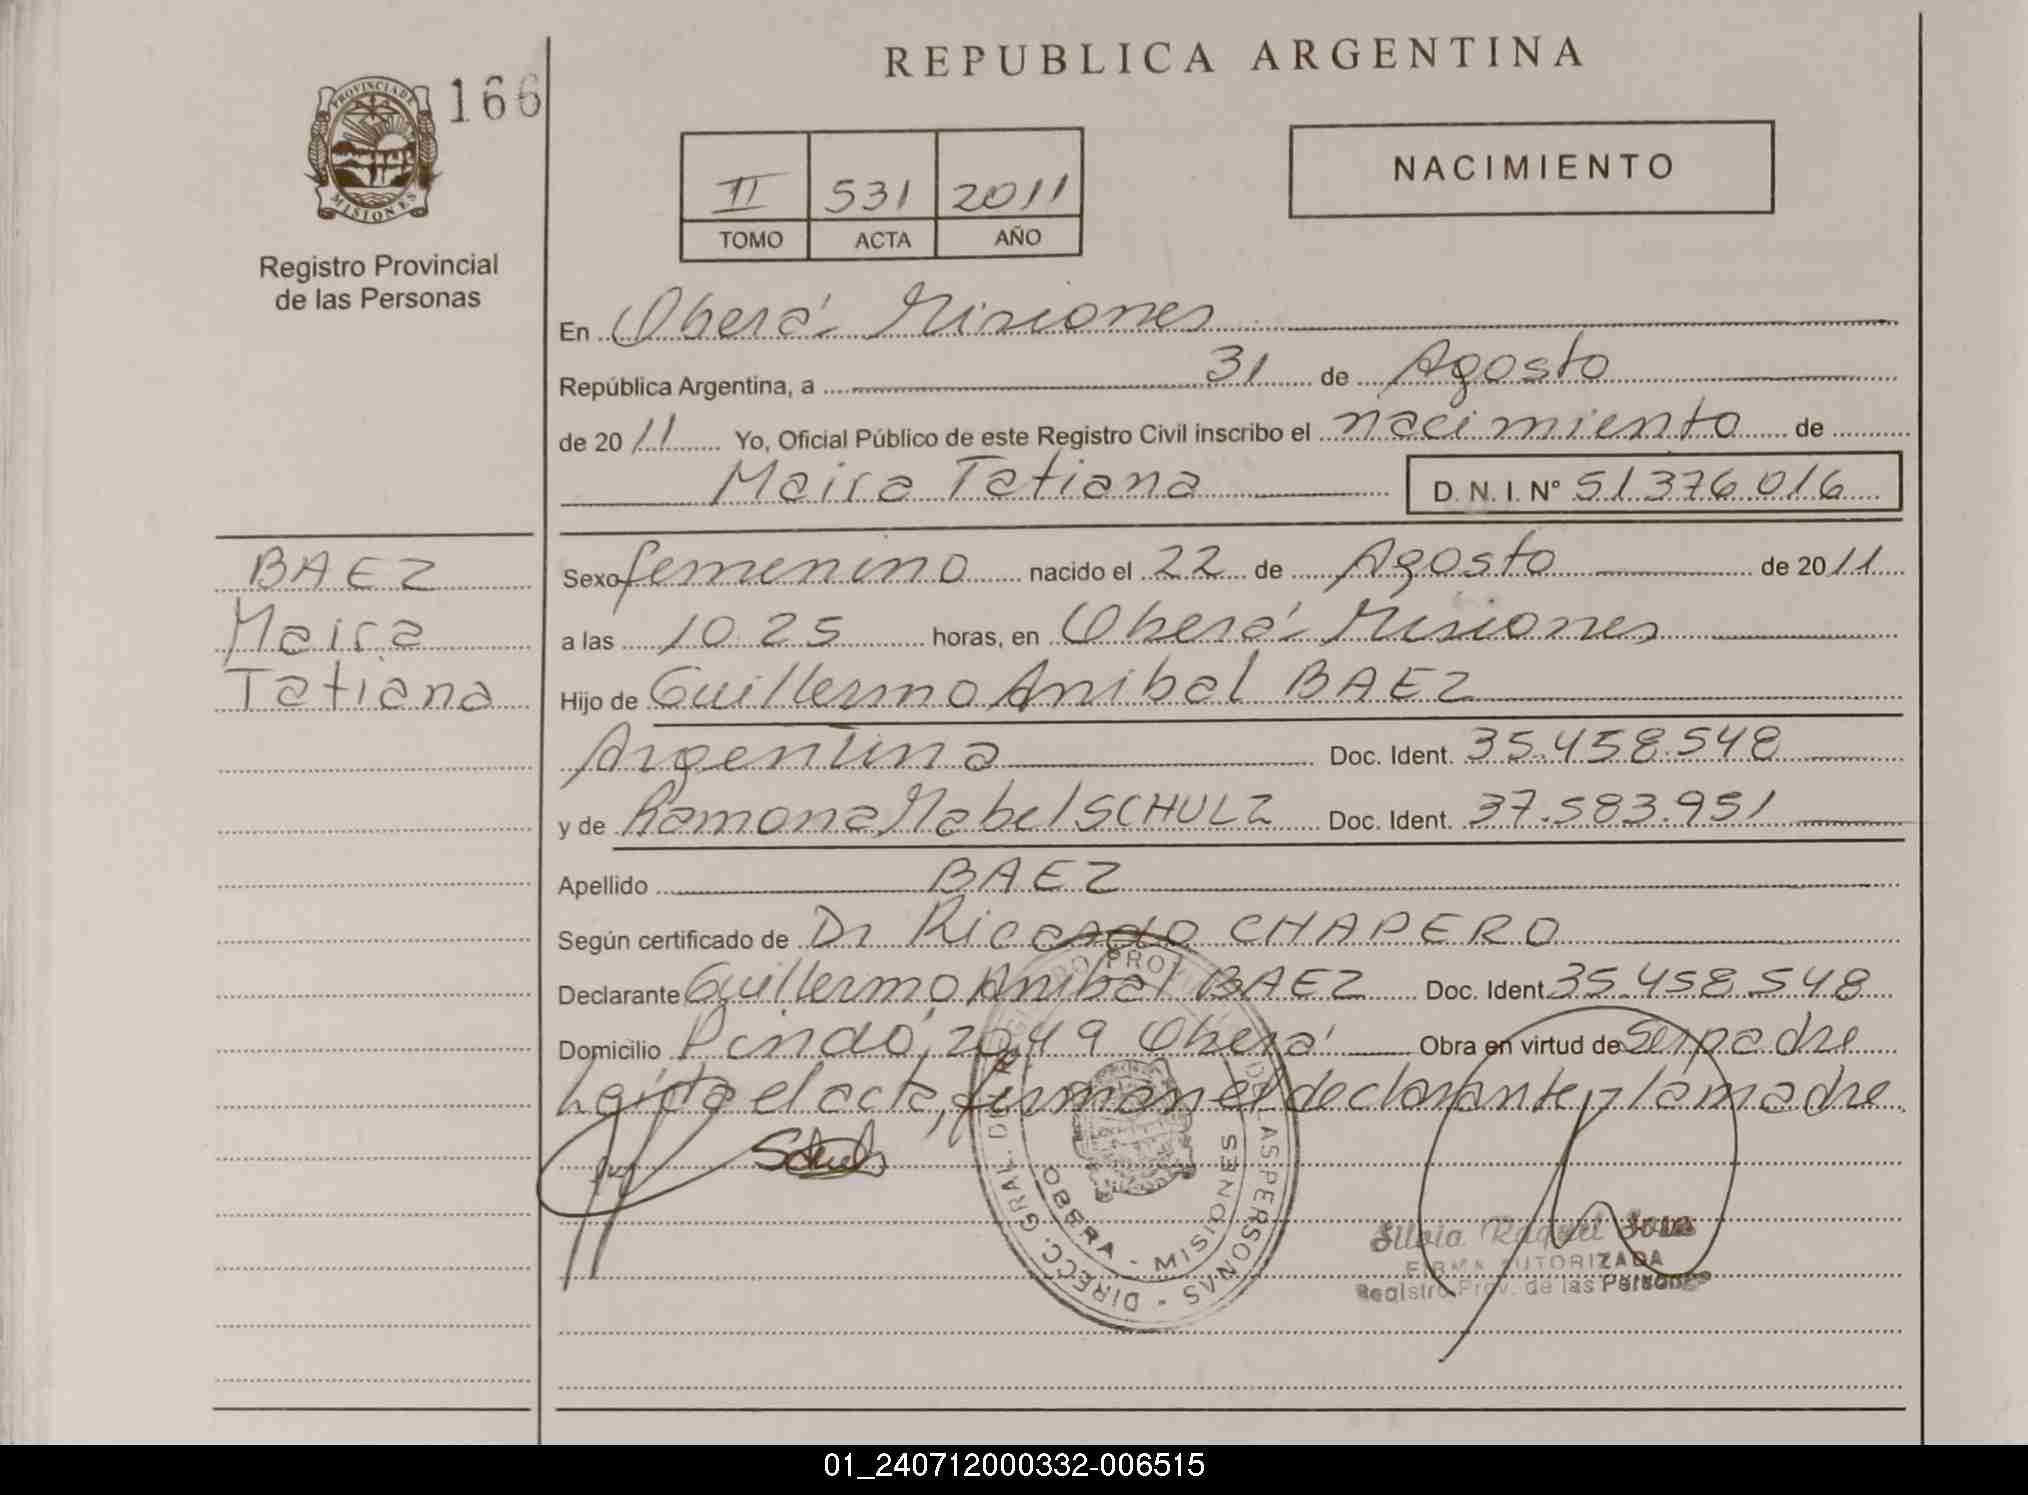 REPUBLICA ARGENTINA
PROVINCIA DE MISIONES
166
Registro Provincial
de las Personas
II 531 2011
TOMO ACTA AÑO
NACIMIENTO
En Oberá Misiones
República Argentina, a 31 de Agosto
de 2011 Yo, Oficial Público de este Registro Civil inscribo el nacimiento de
Maira Tatiana D. N. I. Nº 51376016
BAEZ
Maira
Tatiana
Sexo femenino nacido el 22 de Agosto de 2011
a las 10 25 horas, en Oberá Misiones
Hijo de Guillermo Anibal BAEZ
Argentina Doc. Ident. 35.458.548
y de Ramona Mabel SCHULZ Doc. Ident. 37.583.951
Apellido BAEZ
Según certificado de Dr Ricardo CHAPERO
Declarante Guillermo Anibal BAEZ Doc. Ident. 35.458.548
Domicilio Pindó, 2049 Oberá Obra en virtud de ser padre
Leída el acta, firman el declarante y la madre
DIRECC. GRAL. DEL REGISTRO PROVINCIAL DE LAS PERSONAS
OBERA - MISIONES
Silvia Raquel
FIRMA AUTORIZADA
Registro Prov. de las Personas
01_240712000332-006515